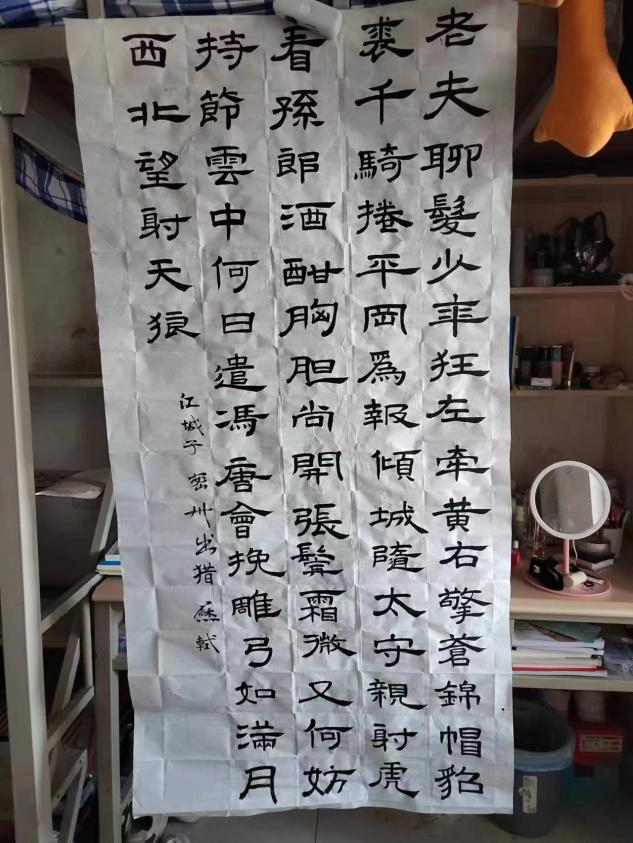 老夫聊髮少年狂左牽黄右擎蒼錦帽貂
裘千騎捲平岡爲報傾城隨太守親射虎
看孫郎酒酣胸胆尚開張鬢霜微又何妨
持節雲中何日遣馮唐會挽雕弓如滿月
西北望射天狼
江城子 密州出猎 蘇軾